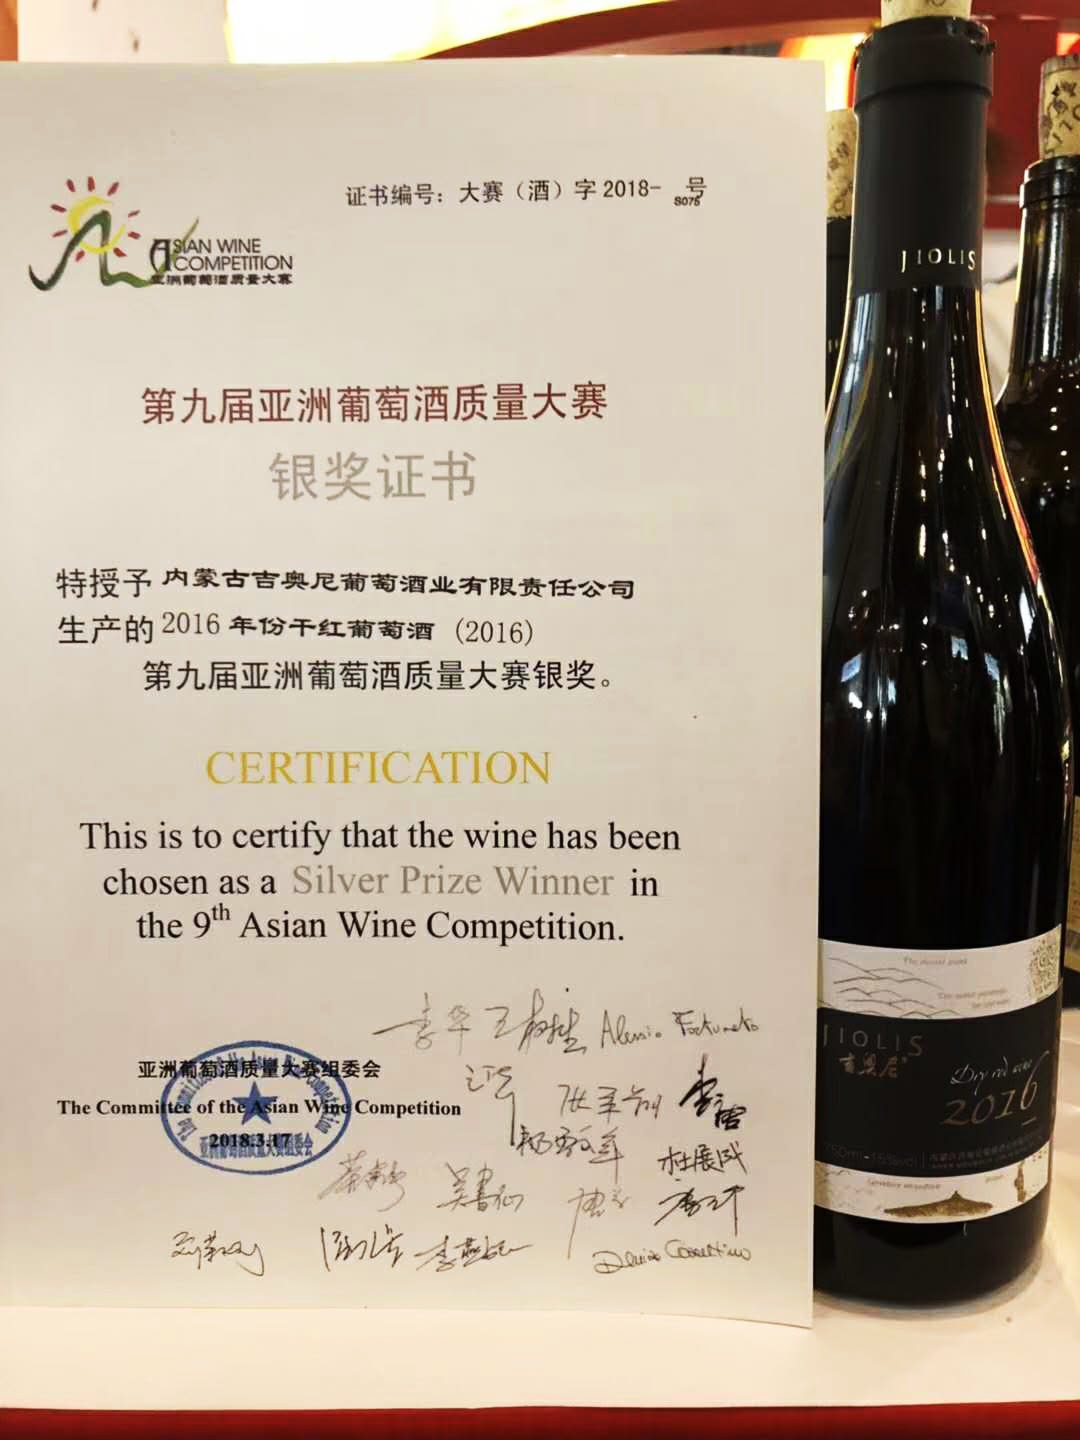 证书编号：大赛（酒）字 2018- S075 号
ASIAN WINE
COMPETITION
亚洲葡萄酒质量大赛
第九届亚洲葡萄酒质量大赛
银奖证书
特授予 内蒙古吉奥尼葡萄酒业有限责任公司
生产的 2016 年份干红葡萄酒 (2016)
第九届亚洲葡萄酒质量大赛银奖。
CERTIFICATION
This is to certify that the wine has been
chosen as a Silver Prize Winner in
the 9th Asian Wine Competition.
李华 Alessio Fortunato
亚洲葡萄酒质量大赛组委会
The Committee of the Asian Wine Competition
2018.3.17
亚洲葡萄酒质量大赛组委会
杜展成
JIOLIS
JIOLIS
吉奥尼
Dry red wine
2016